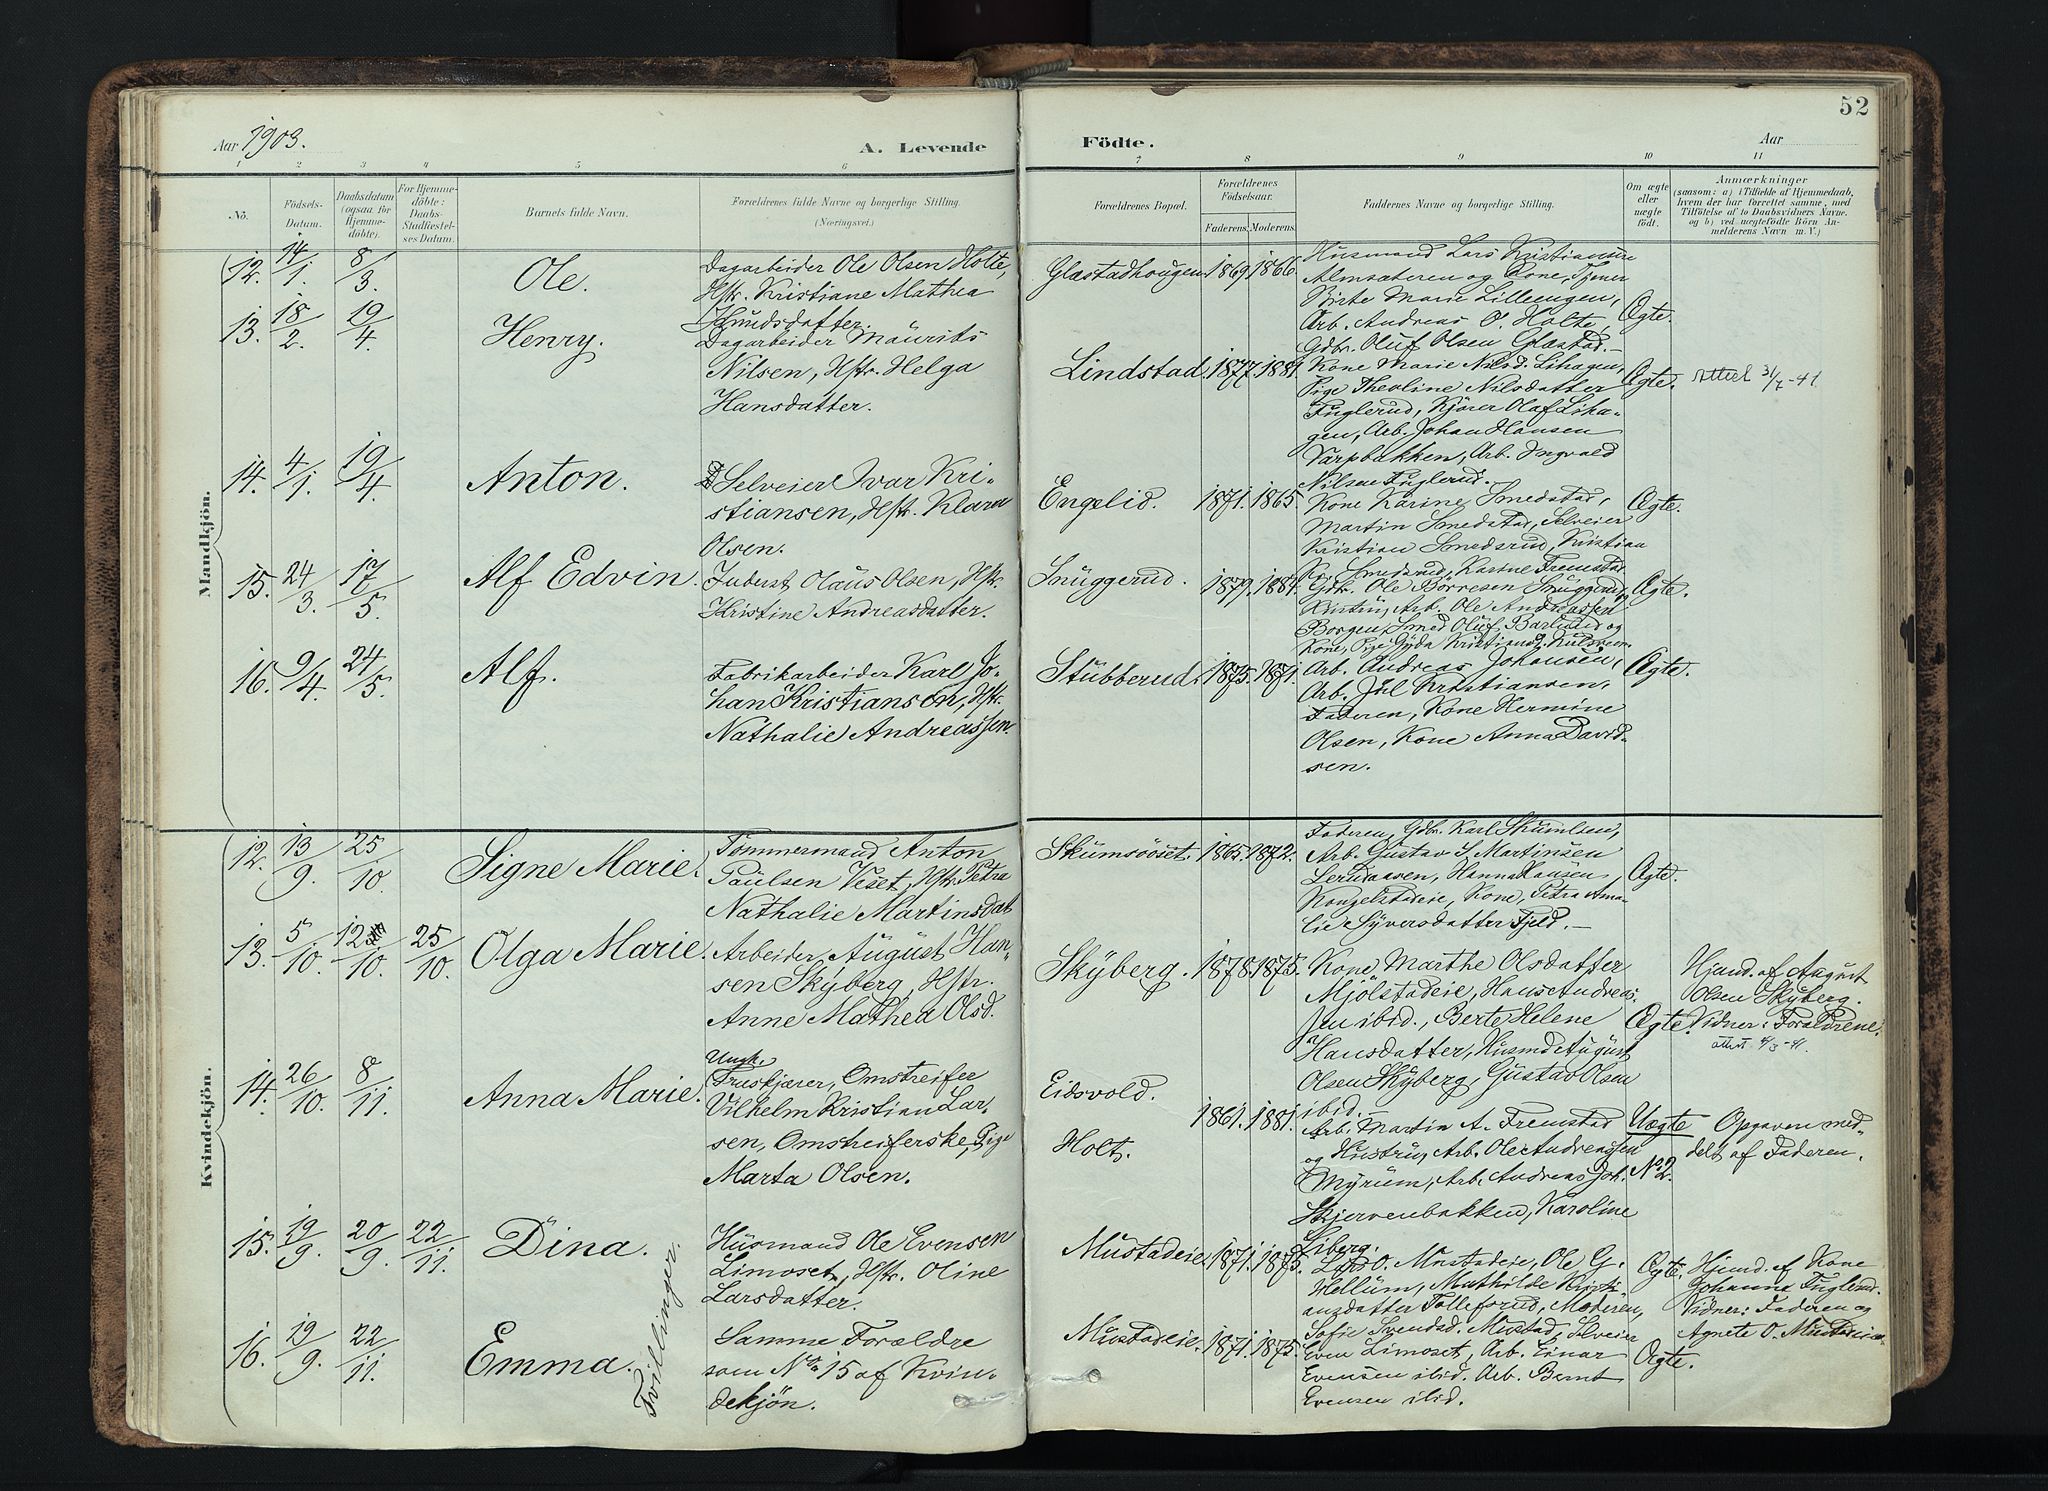 Aar 1903.
A. Levende
Födte.
Aar
52
1 2 3 4 5 6 7 8 9 10 11
No.
Födsels-
Datum.
Daabsdatum
(ogsaa for
Hjemme-
döbte).
For Hjemme-
döbte:
Daabs-
Stadfæstel-
ses Datum.
Barnets fulde Navn.
Forældrenes fulde Navne og borgerlige Stilling.
(Næringsvei.)
Forældrenes Bopæl.
Forældrenes
Födselsaar.
Faderens. Moderens.
Faddernes Navne og borgerlige Stilling.
Om ægte
eller
uægte
födt.
Anmærkninger
(saasom: a) i Tilfælde af Hjemmedaab,
hvem der har forrettet samme, med
Tilföielse af to Daabsvidners Navne.
og b) ved uægtefödte Börn An-
melderens Navn m. V.)
Mandkjön.
12. 14/1. 8/3. Ole.
Dagarbeider Ole Olsen Holte,
Hstr. Kristiane Mathea
Knudsdatter.
Glæstadhougen 1869 1866.
Husmand Lars Kristiansen
Almsæteren og Kone, Tjener
Birte Marie Lilleengen,
Arb. Andreas O. Holte,
Gdbr. Oluf Olsen Glæstad.
Ægte.
13. 18/2. 19/4. Henry.
Dagarbeider Maurits
Nilsen, Hstr. Helga
Hansdatter.
Lindstad. 1877. 1881.
Kone Marie Nilsd. Lihagen,
Pige Theoline Nilsdatter
Fuglerud, Kjörer Olaf Liha-
gen, Arb. Johan Hansen
Varpbakken, Arb. Ingvald
Nilsen Fuglerud.
Ægte. Attest 31/7-41
14. 4/1. 19/4. Anton.
Selveier Ivar Kri-
stiansen, Hstr. Klara
Olsen.
Engelid. 1871. 1865.
Kone Karine Smedstad,
Martin Smedstad, Selveier
Kristian Smedsrud, Kristian
Ægte.
15. 24/3. 17/5. Alf Edvin.
Inderst Olaus Olsen, Hstr.
Kristine Andreasdatter.
Snuggerud. 1879. 1881.
Gdbr. Ole Börresen Snuggerud og
Hustru, Arb. Ole Andreassen
Borgen, Smed Oluf Barlund og
Kone, Pige Gyda Kristiansd.
Ægte.
16. 9/4. 24/5. Alf.
Fabrikarbeider Karl Jo-
han Kristiansen, Hstr.
Nathalie Andreassen.
Stubberud. 1875. 1871.
Arb. Andreas Johansen,
Arb. Jul Kristiansen,
Faderen, Kone Hermine
Olsen, Kone Anna David-
sen.
Ægte.
Kvindekjön.
12. 13/9. 25/10. Signe Marie.
Tömmermand Anton
Paulsen Veset, Hstr. Petra
Nathalie Martinsdat
Skumsööset. 1865. 1872.
Faderen, Gdbr. Karl Skumsen,
Arb. Gustav S. Martinsen
Lerudaasen, Hanna Hansen
Kongelstadeie, Kone, Petra Ama-
lie Syversdatter Fjeld.
Ægte.
13. 5/10. 12/10. 25/10. Olga Marie.
Arbeider August Han-
sen Skyberg, Hstr.
Anne Mathea Olsd.
Skyberg. 1878. 1875.
Kone Marthe Olsdatter
Mjölstadeie, Hans Andreas-
sen ibid., Berte Helene
Hansdatter, Husmd August
Olsen Skyberg, Gustav Olsen
ibid.
Ægte.
Hjemd. af August
Olsen Skyberg.
Vidner: Forældrene.
attest 4/3-41.
14. 26/10. 8/11. Anna Marie.
Ungk.
Fruskjærer, Omstreifer
Vilhelm Kristian Lar-
sen, Omstreiferske, Pige
Marta Olsen.
Eidsvold.
Holt.
1861. 1881.
Arb. Martin A. Fremstad
og Hustru, Arb. Ole Andreassen
Myrum, Arb. Andreas Joh.
Skjervenbakken, Karoline
Liberg.
Uægte
No 2.
Opgaven med-
delt af Faderen.
15. 19/9. 20/9. 22/11. Dina.
Husmand Ole Evensen
Limoset, Hstr. Oline
Larsdatter.
Tvillinger.
Mustadeie. 1871. 1875.
Lars O. Mustadeie, Ole G.
Hellum, Mathilde Kristi-
ansdatter Tolleforud, Moderen,
Ægte.
Hjemd. af Kone
Johanna Fuglerud.
Vidner: Faderen og
Agnete O. Mustadeie
16. 19/9. 22/11. Emma.
Samme Forældre
som No 15 af Kvin-
dekjön.
Mustadeie. 1871. 1875.
Sofie Svendsd. Mustad, Selveier
Even Limoset, Arb. Einar
Evensen ibid. Arb. Bernt
Evensen ibid.
Ægte.